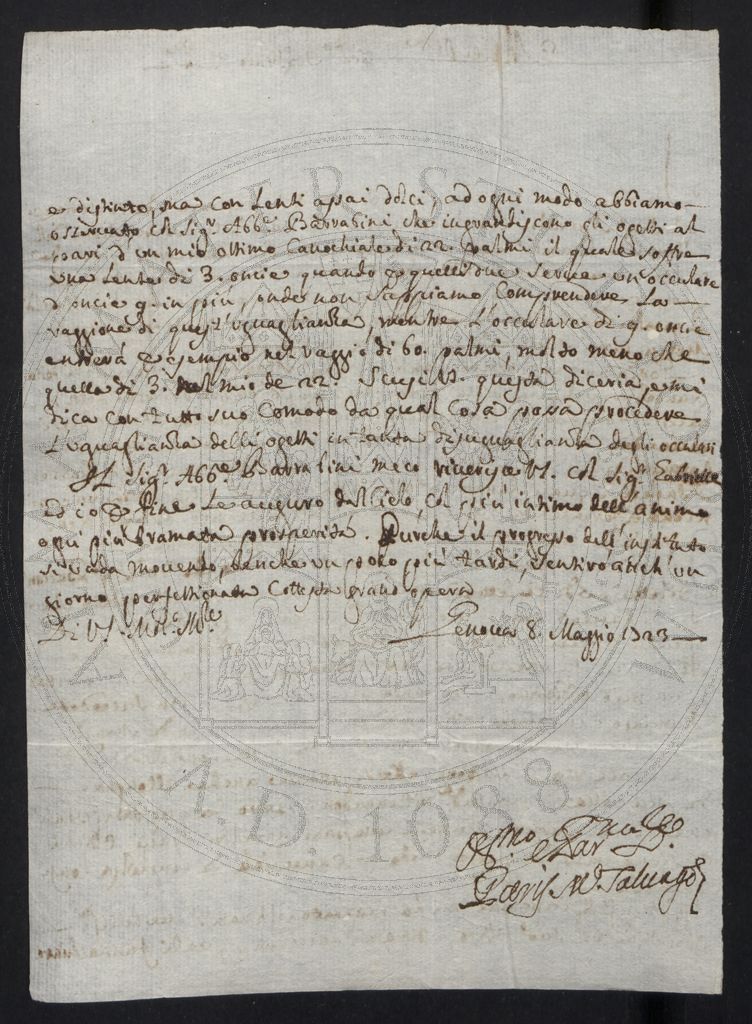 e distinto, ma con Lenti assai dolci, ad ogni modo abbiamo
osservato col Sig.r Abb.e Barrabini che ingrandiscono gli ogetti al
pari d'un mio ottimo Canochiale di 22. palmi il quale soffre
una Lente di 3. oncie quando p quelli due serve un occulare
d'oncie 9. in più, onde non sappiamo Comprendere La
raggione di quest'uguaglianza, mentre L'occulare di 9. oncie
entrerà p esempio nel raggio di 60. palmi, molto meno che
quella di 3. nel mio de 22. Scusi VS. questa diceria, e mi
dica con tutto suo Comodo da qual Cosa possa procedere
L'uguaglianza delli ogetti in tanta disuguaglianza degli occulari
Il Sig.r Abb.e Barrabini meco riverisce VS. col Sig.r Gabrielle
ed io p fine Le auguro dal Cielo, col più intimo dell'animo
ogni più bramata prosperità. Purche il progresso dell'instituto
si vada movendo, benche un poco più tardi, sentirò anch'un
giorno perfettionata Cottesta grand'opera
Di VS. Mol.e Ill.e
Genova 8. Maggio 1723
Paris M.a Salvago
A.D. 1088